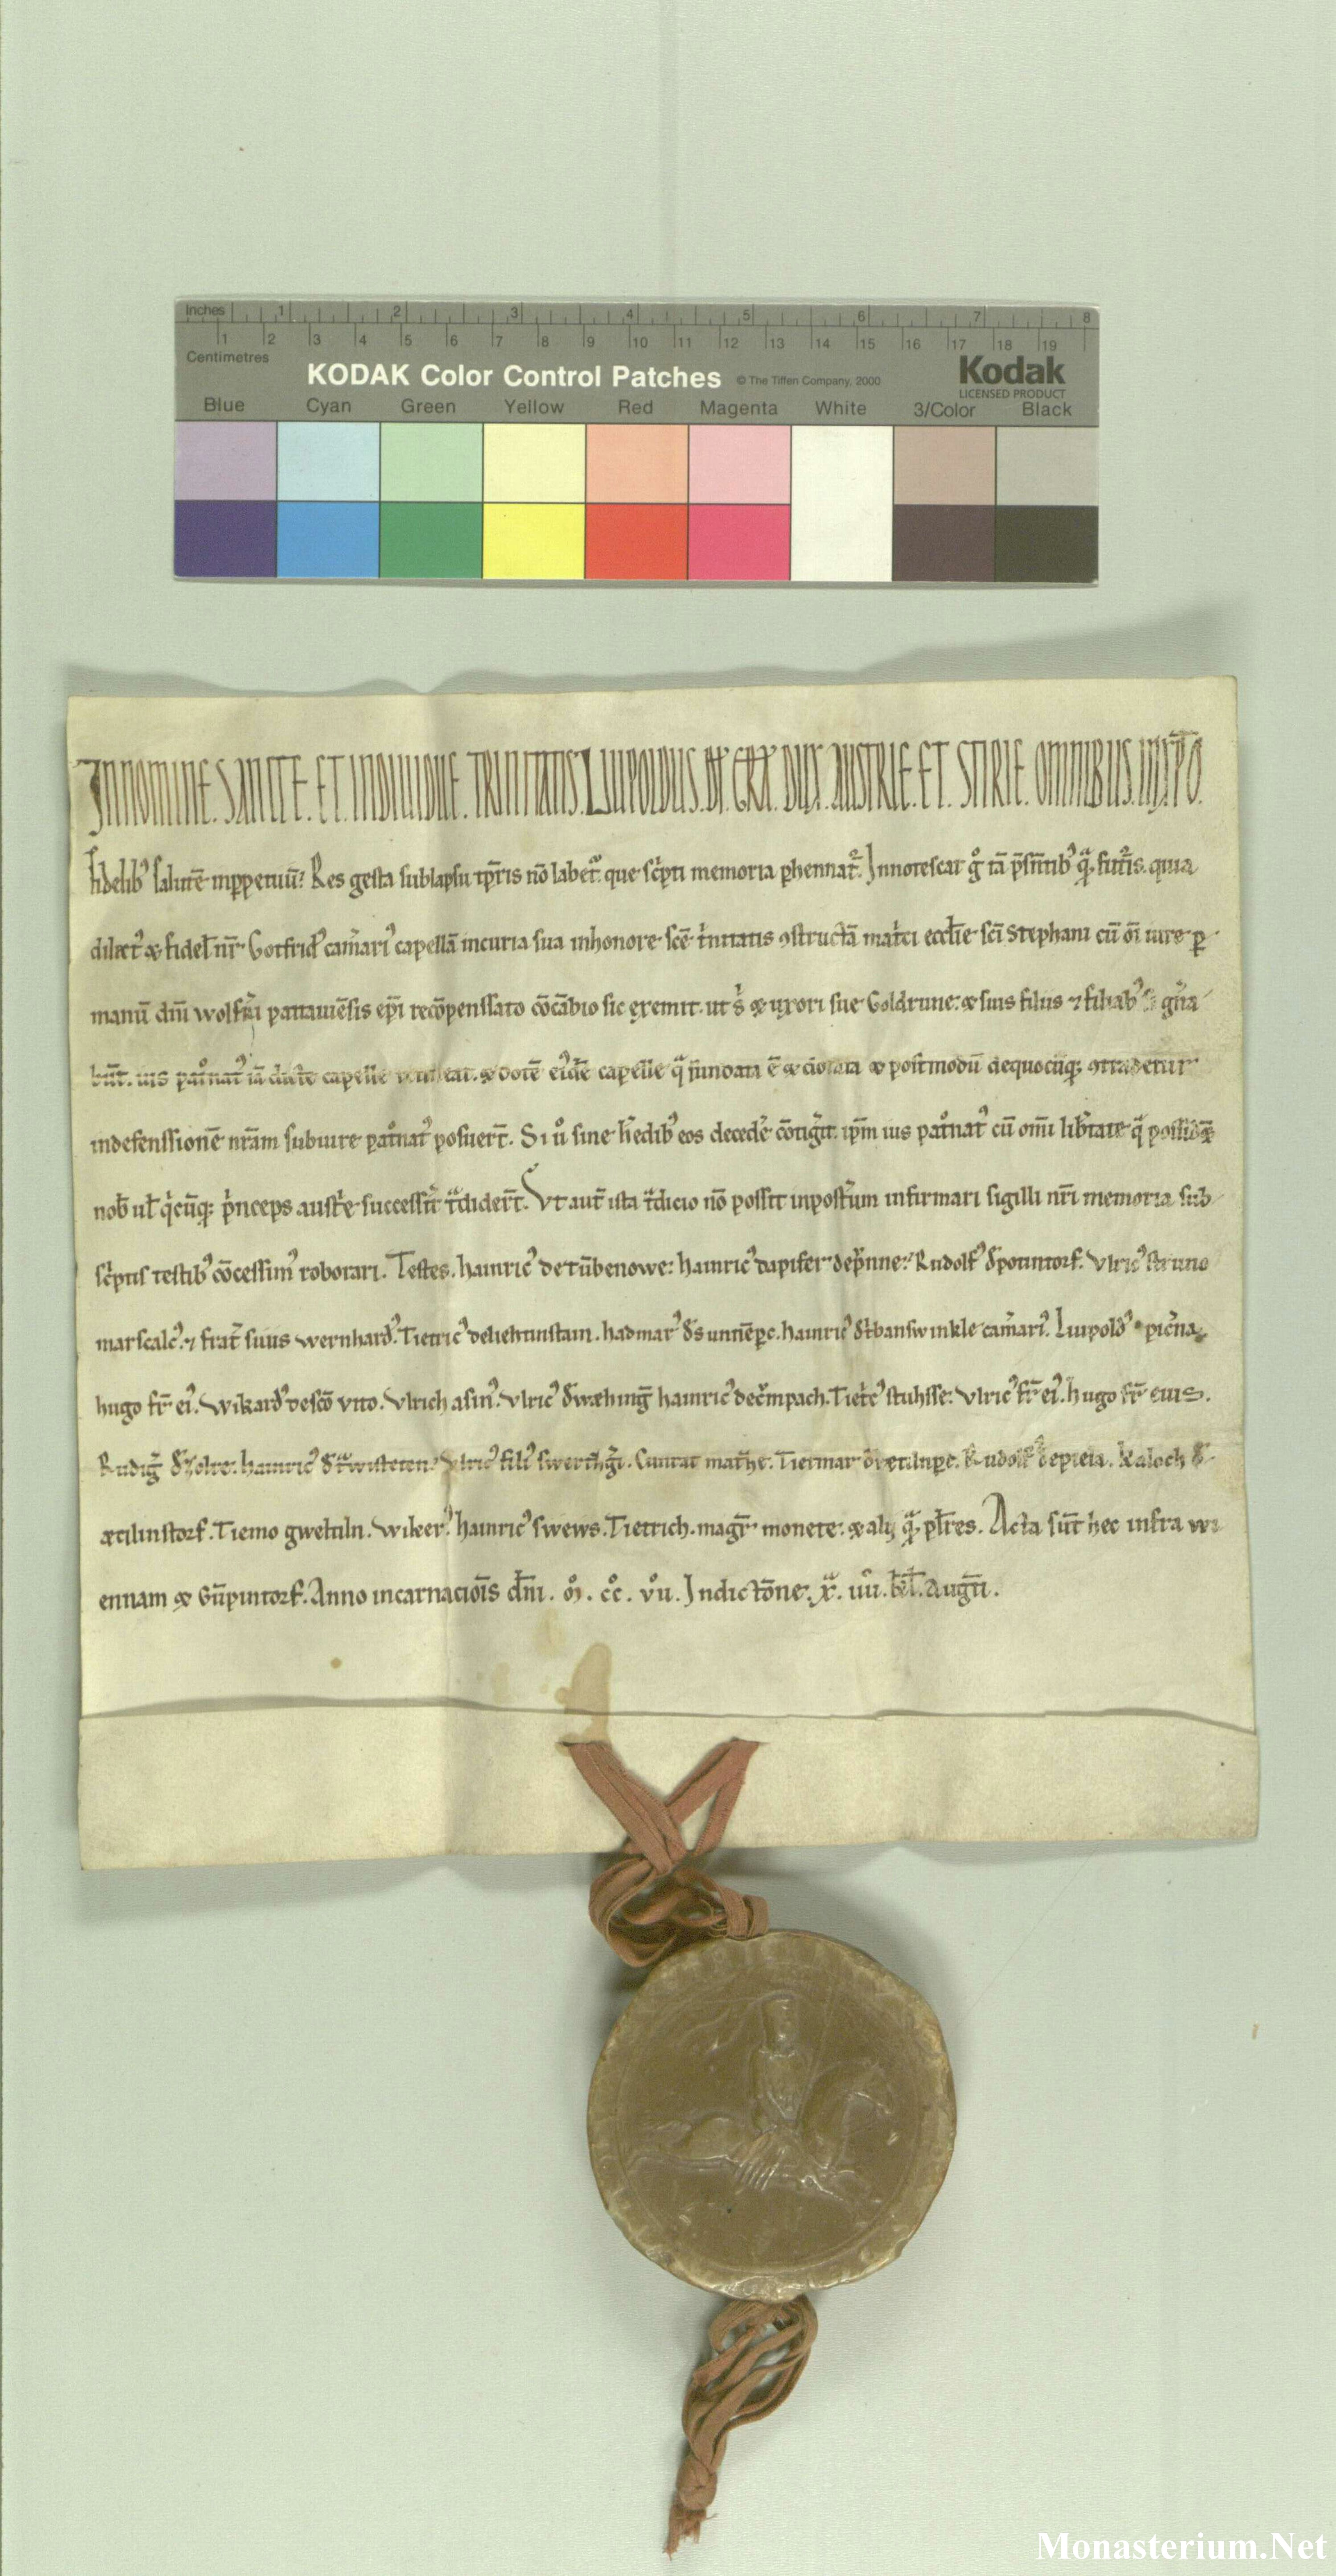 Inches 1 2 3 4 5 6 7 8
1 2 3 4 5 6 7 8 9 10 11 12 13 14 15 16 17 18 19
Centimetres
KODAK Color Control Patches © The Tiffen Company, 2000 Kodak
LICENSED PRODUCT
Blue Cyan Green Yellow Red Magenta White 3/Color Black
IN NOMINE. SANCTE. ET. INDIVIDUE. TRINITATIS. LIUPOLDUS. DI. GRA. DUX. AUSTRIE. ET. STIRIE. OMNIBUS. IN XPO.
fidelibꝰ salutē inppetuū. Res gesta sub lapsu tp̄ris nō labet᷑. que sc̓pti memoria phennat᷑. Innotescat gͦ tā p̄sn̄tibꝰ qͣ. futur̄is. quia
dilectꝰ & fidel̄ nr̄ Gotfridꝰ cam̓ariꝰ capellā in curia sua in honore sc̄e t̓nitatis ꝯstructā mat̓ci eccl̄ie sc̄i Stephani cū om̄i iure ꝑ
manū dn̄i wolfk̓i pattauiēsis ep̄i recōpenssato cōcābio sic exemit. ut s̓ & uxori sue Goldrune. & suis filiis ⁊ filiabꝰ gn̓a
būt. ius pat͛onatꝰ iā dicte capelle & dotē eiꝰdē capelle qͣ fundata ē & postmodū a quocūqꝫ ꝯtradetur
in defenssionē nr̄am sub iure pat͛onatꝰ posuert̄. Si u͛o sine h̓edibꝰ eos deced̓e cōtig̓it. ip̄m ius pat͛onatꝰ cū om̄i lib̓tate qͣ
nob̄ ul̄ q̓cūqꝫ p̓nceps aust̓e successit̓ tͣdidert̄. Vt aut̄ ista tͣdicio nō possit inpost̓um infirmari sigilli nr̄i memoria sub
sc̓ptis testibꝰ cōcessimꝰ roborari. Testes. hainricꝰ de tūbenowe. hainricꝰ dapifer de p̓nne. Rudolfꝰ d̓ potintorf. Vlricꝰ struno
marscalcꝰ. ⁊ frat̓ suus wernhardꝰ. Tietricꝰ de liehtinstain. hadmarꝰ d̓ sunnēperc. hainricꝰ d̓ t̓banswinkle cam̓ariꝰ. Liupoldꝰ pic̓na
hugo fr̄ eiꝰ. Wikardꝰ Vlrich asinꝰ. Vlricꝰ hainricꝰ de Tiet̓cꝰ stuhsse. Vlricꝰ fr̄ eiꝰ. hugo fr̄ eius.
Rudig̓ hainricꝰ Vlricꝰ filiꝰ Tiemar Rudolf Kaloch d̓
ætilinstorf. Tiemo hainricꝰ swews. Tietrich. magr̄ monete. & alij qͣ. pl̄res. Acta sūt hec infra wi
ennam & Gūpintorf. Anno incarnaciōis dn̄i. m̊. cc̊. v̊ii. Indictōne. xͣ. uii. kl̄. Augt̄i.
Monasterium.Net